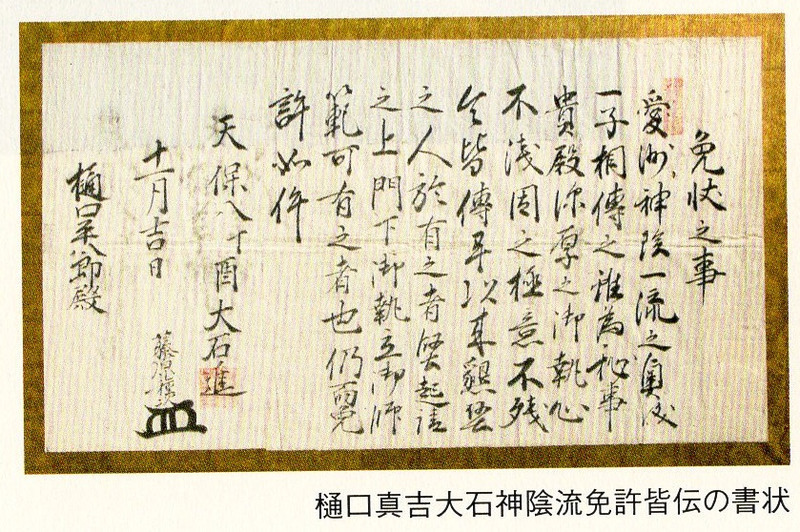 免状之事
愛洲神陰一流之奥儀
一子相傳之雖為秘事
貴殿深厚之御執心
不浅因之極意不残
令皆傳畢以来懇望
之人於有之者堅起請
之上門下御執立御師
範可有之者也仍而免
許如件
天保八丁酉大石進
十一月吉日
樋口真吉大石神陰流免許皆伝の書状